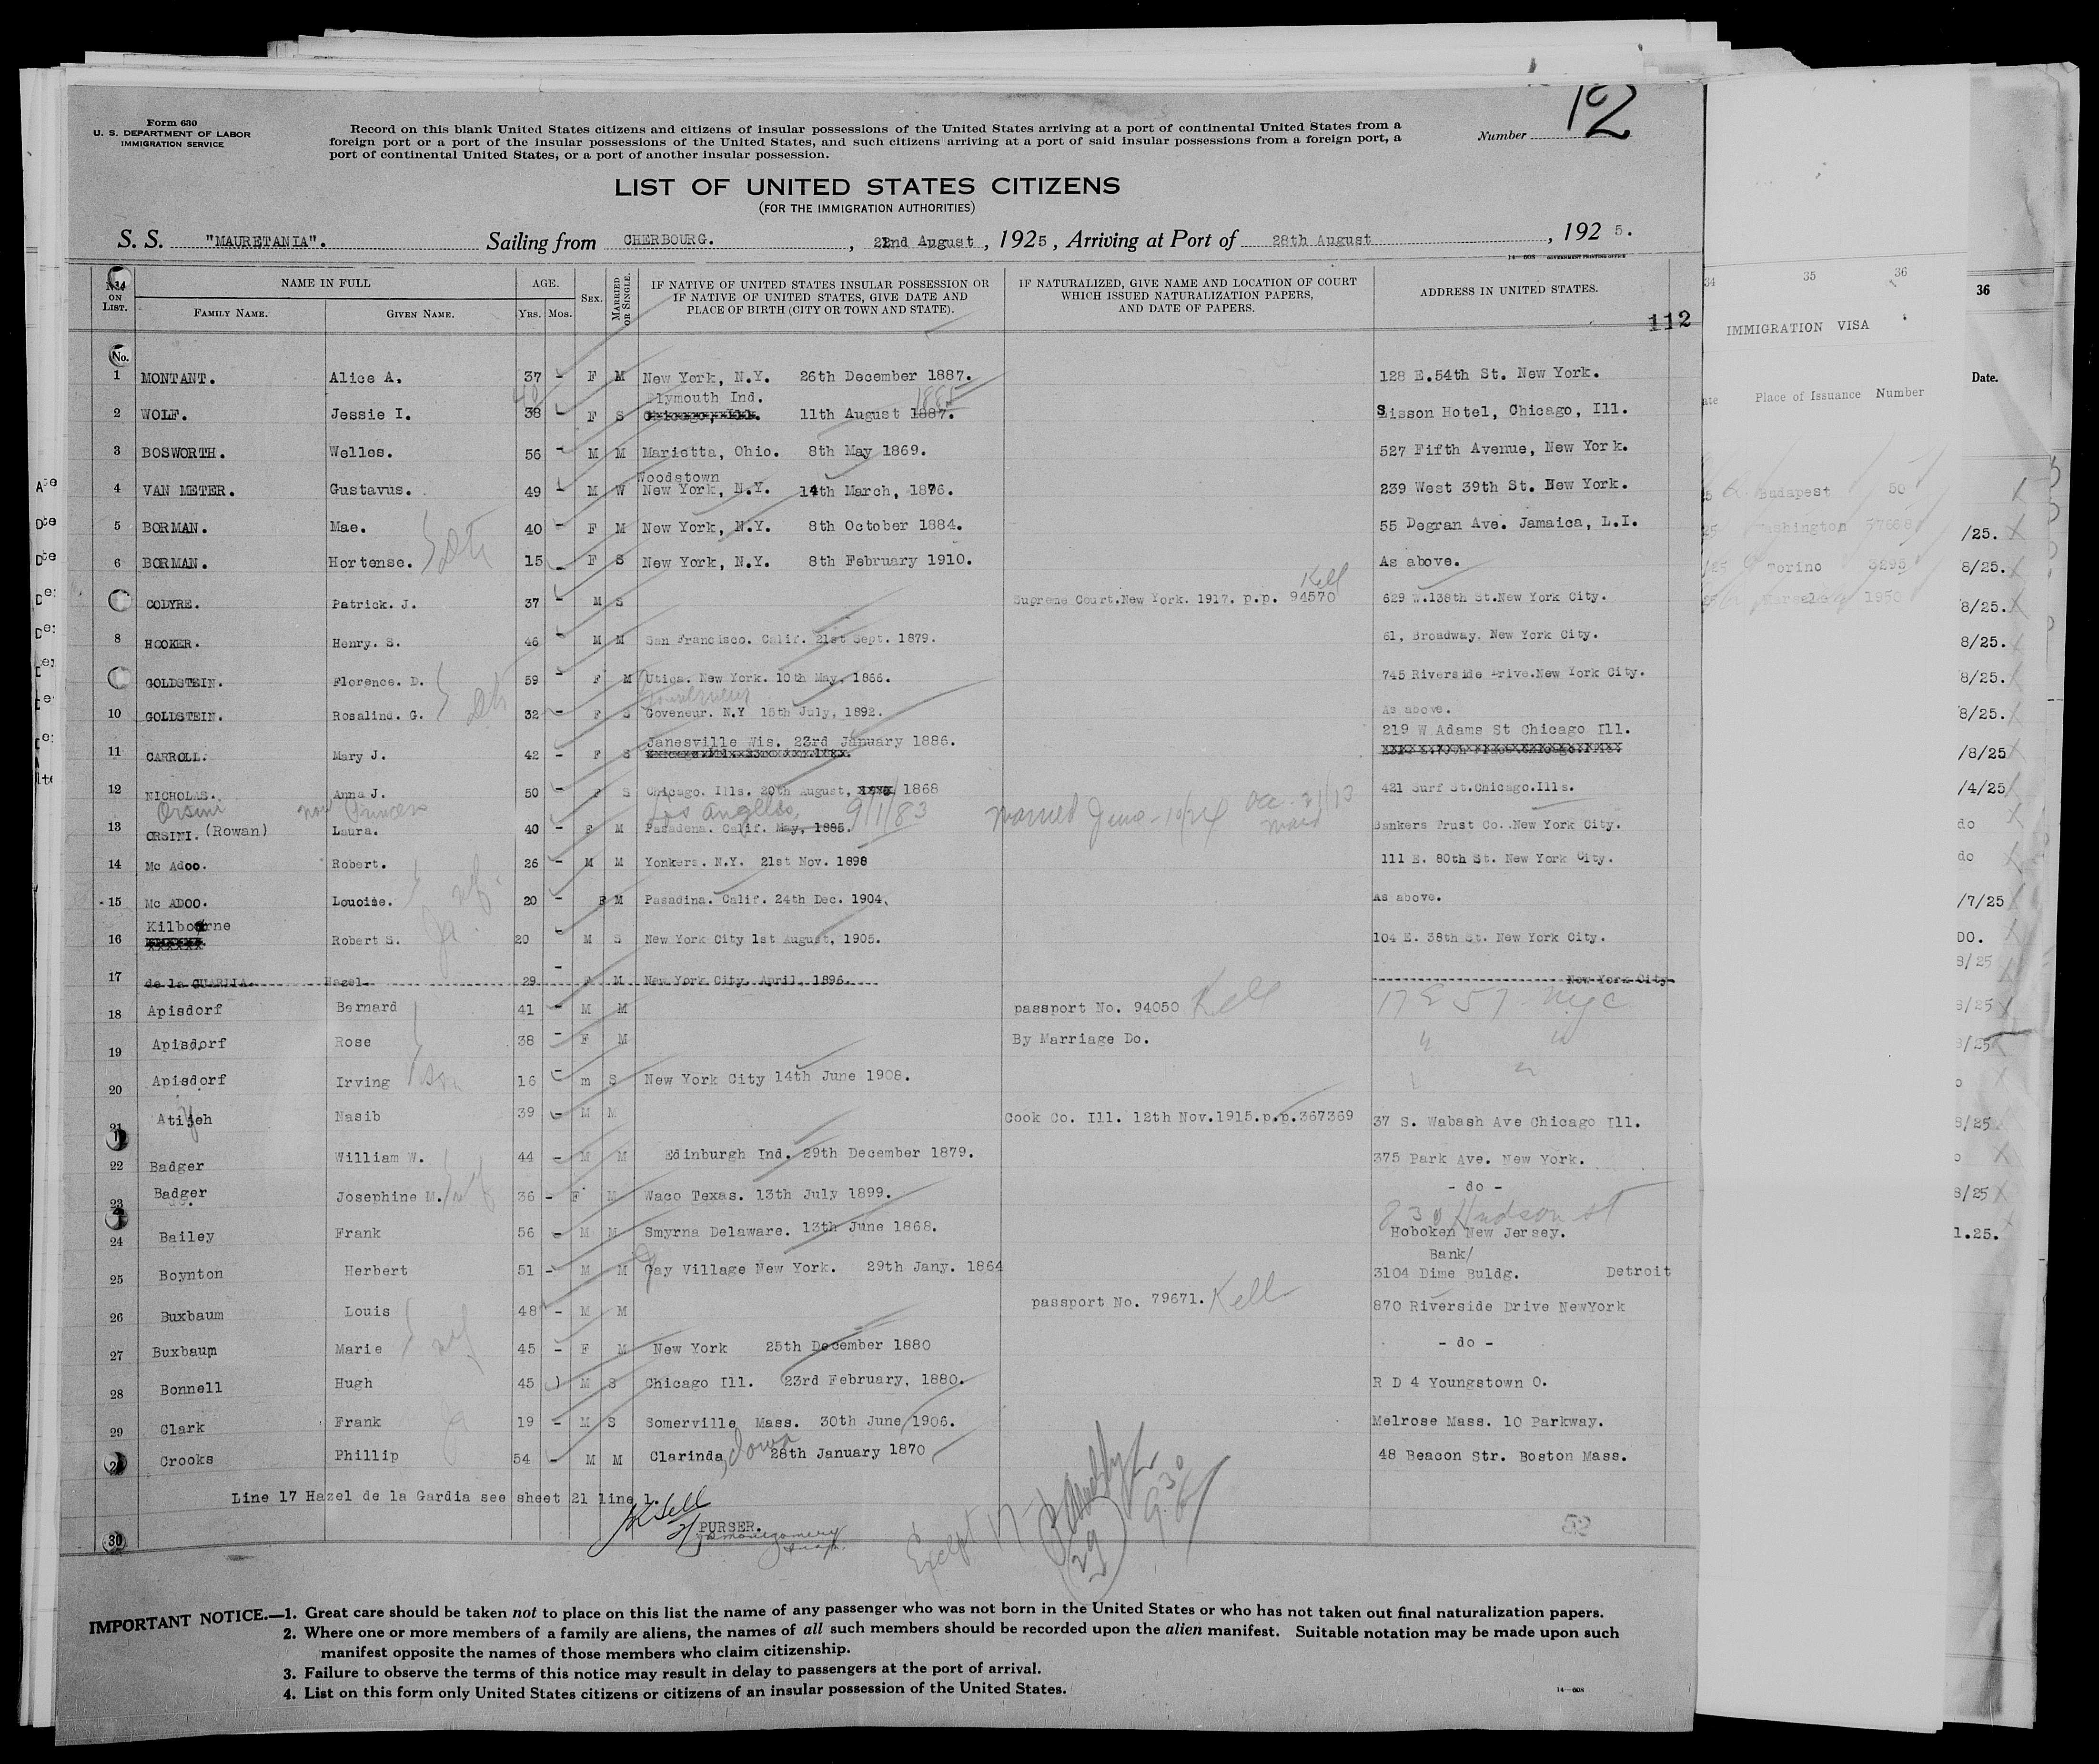 12
Form 630
U. S. DEPARTMENT OF LABOR
IMMIGRATION SERVICE
Record on this blank United States citizens and citizens of insular possessions of the United States arriving at a port of continental United States from a
foreign port or a port of the insular possessions of the United States, and such citizens arriving at a port of said insular possessions from a foreign port, a
port of continental United States, or a port of another insular possession.
Number
LIST OF UNITED STATES CITIZENS
(FOR THE IMMIGRATION AUTHORITIES)
S. S. "MAURETANIA". Sailing from CHERBOURG. , 22nd August , 1925 , Arriving at Port of 28th August , 192 5.
14—608 GOVERNMENT PRINTING OFFICE
No. ON LIST. NAME IN FULL AGE. SEX. MARRIED OR SINGLE. IF NATIVE OF UNITED STATES INSULAR POSSESSION OR IF NATIVE OF UNITED STATES, GIVE DATE AND PLACE OF BIRTH (CITY OR TOWN AND STATE). IF NATURALIZED, GIVE NAME AND LOCATION OF COURT WHICH ISSUED NATURALIZATION PAPERS, AND DATE OF PAPERS. ADDRESS IN UNITED STATES.
FAMILY NAME. GIVEN NAME. YRS. MOS.
112
No.
1 MONTANT. Alice A. 37 - F M New York, N.Y. 26th December 1887. 128 E.54th St. New York.
40 Plymouth Ind. 1885
2 WOLF. Jessie I. 38 - F S 11th August 1887. Sisson Hotel, Chicago, Ill.
3 BOSWORTH. Welles. 56 - M M Marietta, Ohio. 8th May 1869. 527 Fifth Avenue, New York.
Woodstown
4 VAN METER. Gustavus. 49 - M W New York, N.Y. 14th March, 1876. 239 West 39th St. New York.
5 BORMAN. Mae. 40 - F M New York, N.Y. 8th October 1884. 55 Degran Ave. Jamaica, L.I.
6 BORMAN. Hortense. 15 - F S New York, N.Y. 8th February 1910. As above.
Kell
CODYRE. Patrick. J. 37 - M S Supreme Court.New York. 1917. p.p. 94570 629 W.138th St.New York City.
8 HOOKER. Henry. S. 46 - M M San Francisco. Calif. 21st Sept. 1879. 61, Broadway. New York City.
GOLDSTEIN. Florence. D. 59 - F M Utica. New York. 10th May. 1866. 745 Riverside Drive.New York City.
10 GOLDSTEIN. Rosalind. G. 32 - F S Goveneur. N.Y 15th July, 1892. As above.
Janesville Wis. 23rd January 1886. 219 W Adams St Chicago Ill.
11 CARROLL. Mary J. 42 - F S
12 NICHOLAS. Anna J. 50 - F S Chicago. Ills. 20th August, 1868 421 Surf St.Chicago.Ills.
Orsini now Princess Los Angeles, 9/1/83 married June - 10/24
13 ORSINI. (Rowan) Laura. 40 - F M Pasadena. Calif. May, 1885. Bankers Trust Co. New York City.
14 Mc Adoo. Robert. 26 - M M Yonkers. N.Y. 21st Nov. 1898 111 E. 80th St. New York City.
15 Mc ADOO. Louoise. 20 - F M Pasadina. Calif. 24th Dec. 1904. As above.
Kilborne
16 Robert S. 20 - M S New York City 1st August, 1905. 104 E. 38th St. New York City.
17 de la GUARDIA. Hazel 29 - F M New York City. April, 1896. New York City
18 Apisdorf Bernard 41 - M M passport No. 94050 Kell 17 E 57 - nyc
19 Apisdorf Rose 38 - F M By Marriage Do. " "
20 Apisdorf Irving son 16 - m S New York City 14th June 1908. " "
21 Atiyeh Nasib 39 - M M Cook Co. Ill. 12th Nov.1915.p.p.367369 37 S. Wabash Ave Chicago Ill.
22 Badger William W. 44 - M M Edinburgh Ind. 29th December 1879. 375 Park Ave. New York.
23 Badger Josephine M. 36 - F M Waco Texas. 13th July 1899. - do -
do. 830 Hudson st
24 Bailey Frank 56 - M M Smyrna Delaware. 13th June 1868. Hoboken New Jersey.
Bank/
25 Boynton Herbert 51 - M M Gay Village New York. 29th Jany. 1864 3104 Dime Buldg. Detroit
26 Buxbaum Louis 48 - M M passport No. 79671. Kell 870 Riverside Drive NewYork
27 Buxbaum Marie 45 - F M New York 25th December 1880 - do -
28 Bonnell Hugh 45 M S Chicago Ill. 23rd February, 1880. R D 4 Youngstown O.
29 Clark Frank 19 - M S Somerville Mass. 30th June, 1906. Melrose Mass. 10 Parkway.
Crooks Phillip 54 - M M Clarinda, Iowa 28th January 1870 48 Beacon Str. Boston Mass.
Line 17 Hazel de la Gardia see sheet 21 line 1.
PURSER.
30
Except 17
29
9 30
52
IMPORTANT NOTICE.—1. Great care should be taken not to place on this list the name of any passenger who was not born in the United States or who has not taken out final naturalization papers.
2. Where one or more members of a family are aliens, the names of all such members should be recorded upon the alien manifest. Suitable notation may be made upon such
manifest opposite the names of those members who claim citizenship.
3. Failure to observe the terms of this notice may result in delay to passengers at the port of arrival.
4. List on this form only United States citizens or citizens of an insular possession of the United States.
14—608
34 35 36
IMMIGRATION VISA
Place of Issuance Number
Budapest 50
Washington 57668
Torino 3295
1950
36
Date.
/25.
8/25.
8/25.
8/25.
8/25.
8/25.
/8/25
/4/25
do
do
/7/25
DO.
8/25
8/25
8/25
8/25
8/25
1.25.